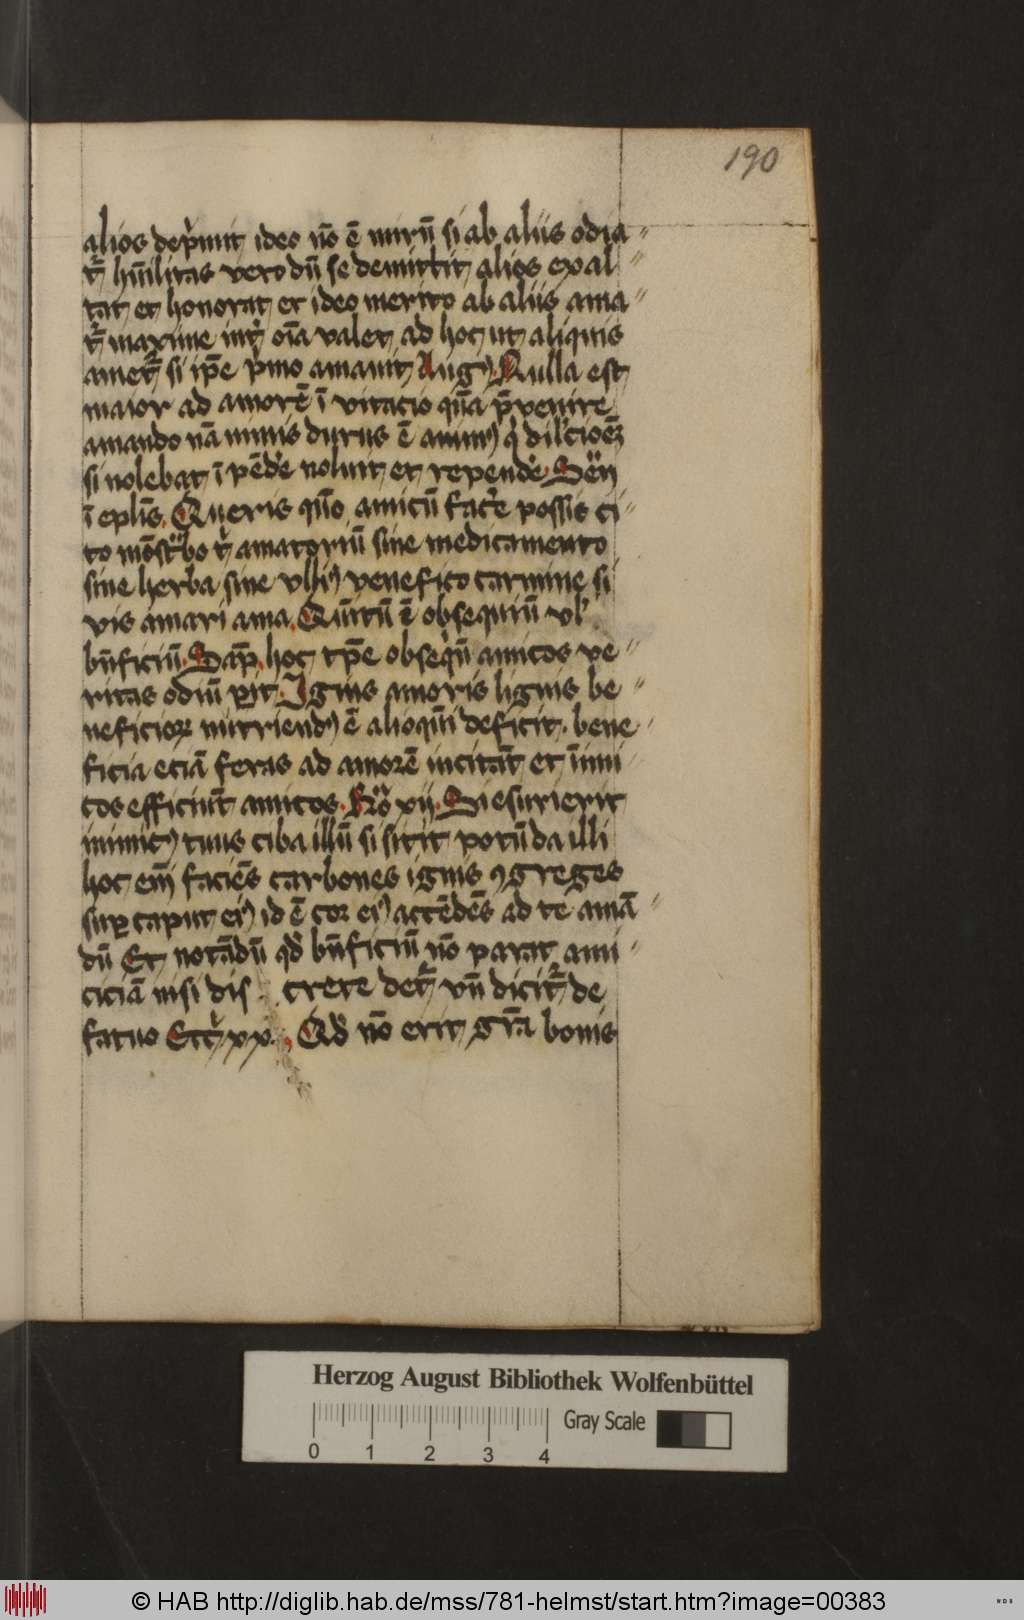 190
alios dep̃mit ideo nō ē mirū si ab aliis odia
tr̃ hūilitas vero dū se demittit alios exal
tat et honorat et ideo merito ab aliis ama
tr̃ maxime int̃ oīa valet ad hoc ut aliquis
amet̃ si ip̄e p̃mo amauit Augꝰ Nulla est
maior ad amorē ī vitacio quā p̄venire
amando nā nimis durus ē animꝰ
si nolebat ī pēdẽ noluit et rependẽ Sen̄
ī epl̄is Queris quō amicū facẽ possis ci
to mōstͣbo t̾ amatoriū sine medicamento
sine herba sine ullꝰ venefico carmine si
vis amari ama ē obsequiū vl̾
bn̄ficiū Sap̄ hoc tp̄e obseq̃ū amicos ve
ritas odiū ꝑit Ignis amoris lignis be
neficioꝝ nutriendꝰ ē alioqn̄i deficit bene
ficia eciā feras ad amorē incitāt et īimi
cos efficiūt amicos Rō xij Si esurierit
inimicꝰ tuus ciba illū si sitit potū da illi
hoc em̄ faciēs carbones ignis ꝯgreges
suꝑ caput eiꝰ id ē cor eiꝰ accēdēs ad te amā
dū Et notādū qd̄ bn̄ficiū nō parat ami
ciciā nisi dis crete det̃ vn̄ dicit̃ de
fatuo xx Qd̄ nō erit gr̄a bonis
Herzog August Bibliothek Wolfenbüttel
Gray Scale
0 1 2 3 4
© HAB http://diglib.hab.de/mss/781-helmst/start.htm?image=00383